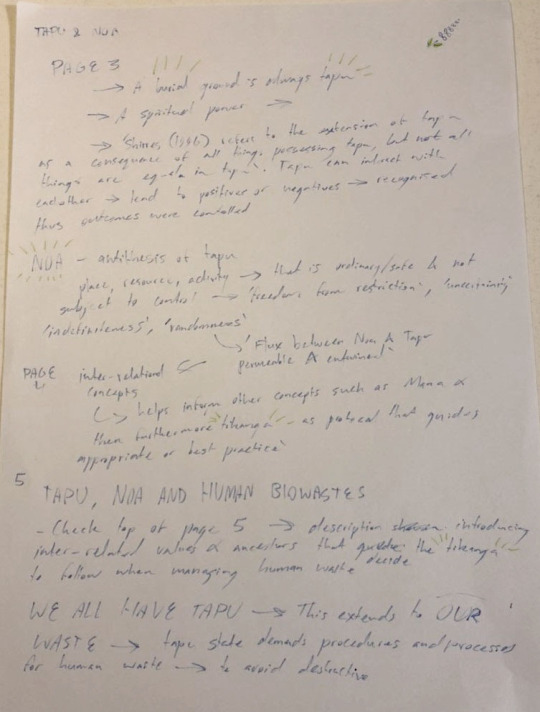 TAPU & NOA
PAGE 3
→ A burial ground is always tapu
→ A spiritual power →
→ 'Shirres (1996) refers to the extension of tapu
as a consequence of all things possessing tapu, but not all
things are equal in tapu'. Tapu can interact with
eachother → lead to positives or negatives → recognised
thus outcomes were controlled
NOA - antithesis of tapu
place, resource, activity → that is ordinary/safe & not
subject to control → 'freedom from restriction', 'uncertainty'
'indefiniteness', 'randomness'
'Flux between Noa & Tapu
permeable & entwined'
PAGE inter-relational
concepts
helps inform other concepts such as Mana &
then furthermore 'tikanga' - as protocol that guides
appropriate or best practice'
5 TAPU, NOA AND HUMAN BIOWASTES
- Check top of page 5 → description introducing
inter-related values & ancestors that guide the tikanga
to follow when managing human waste decide
WE ALL HAVE TAPU → This extends to OUR
WASTE → tapu state demands procedures and processes
for human waste → to avoid destructive